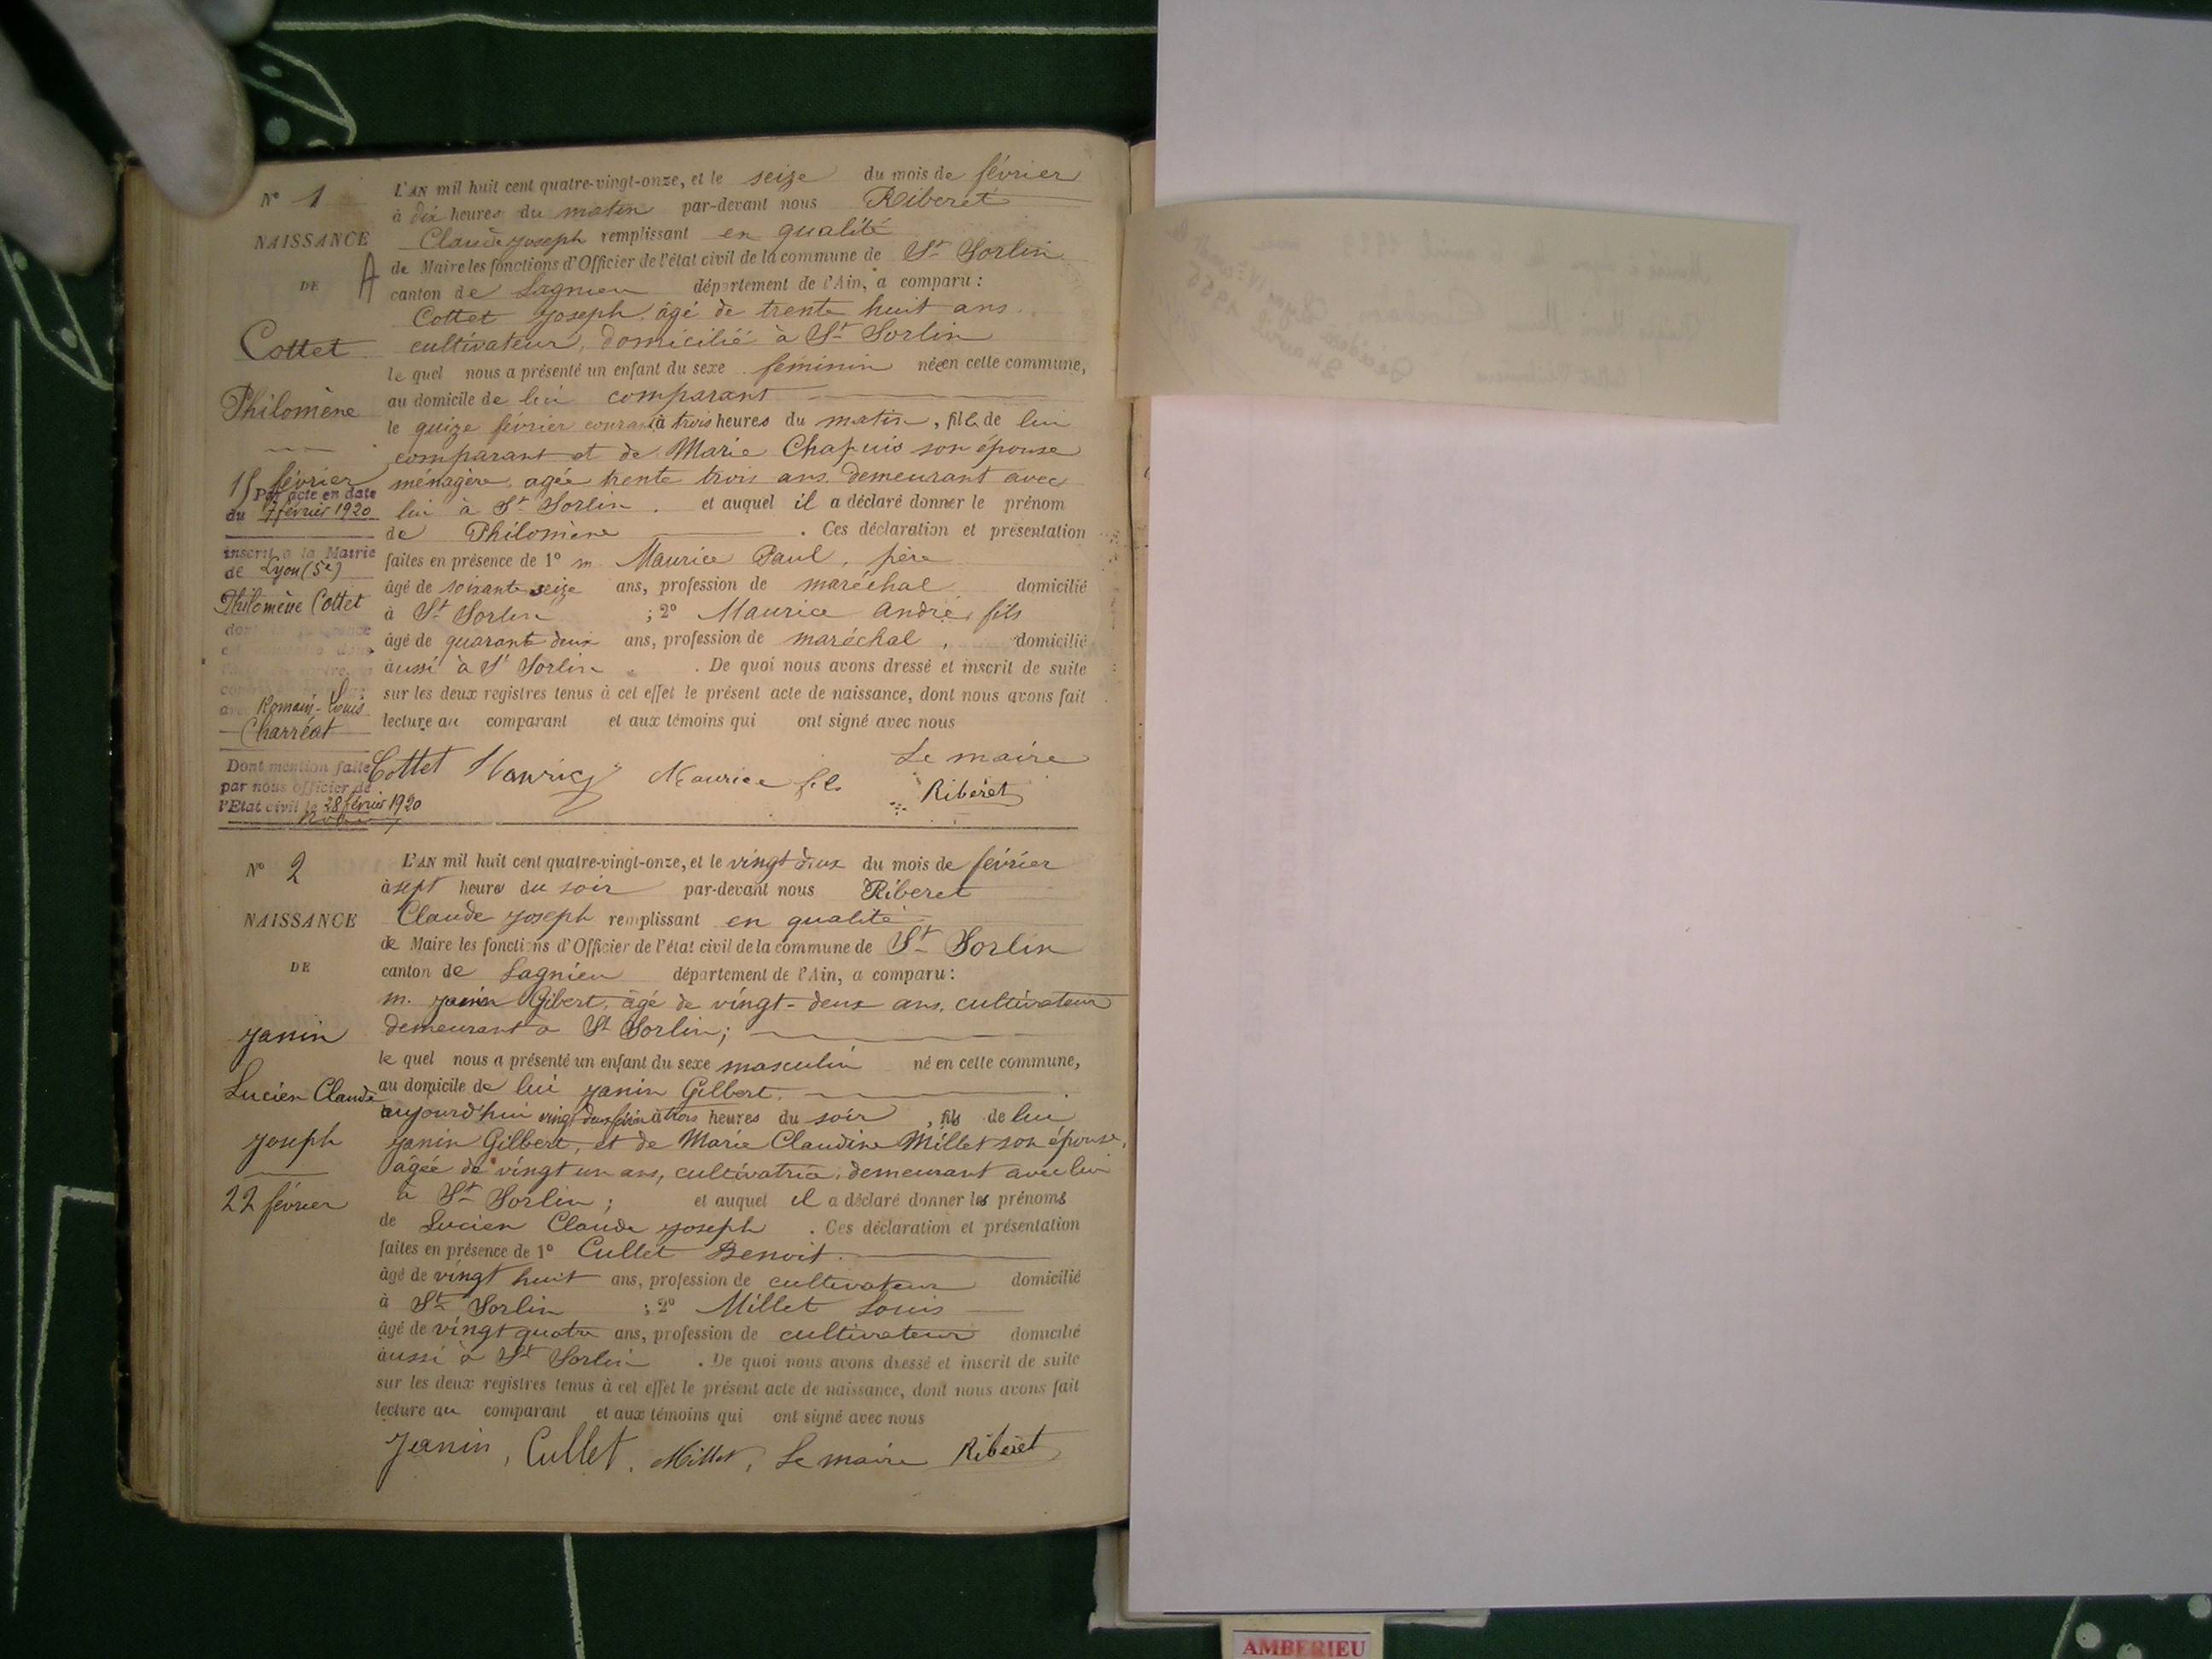 N° 1
NAISSANCE
DE
A
Cottet
Philomène
15 février
Par acte en date
du 7 février 1920
inscrit à la Mairie
de Lyon (5e)
Philomène Cottet
dont
avec Romain-Louis
Charréat
Dont mention faite
par nous officier de
l'Etat civil le 28 février 1920
L'AN mil huit cent quatre-vingt-onze, et le seize du mois de février
à dix heures du matin par-devant nous Riberet
Claude Joseph remplissant en qualité
de Maire les fonctions d'Officier de l'état civil de la commune de St Sorlin
canton de Lagnieu département de l'Ain, a comparu :
Cottet Joseph, âgé de trente huit ans
cultivateur, domicilié à St Sorlin
le quel nous a présenté un enfant du sexe féminin née en cette commune,
au domicile de lui comparant
le quize février courant à trois heures du matin, fille de lui
comparant et de Marie Chapuis son épouse
ménagère, agée trente trois ans demeurant avec
lui à St Sorlin. et auquel il a déclaré donner le prénom
de Philomène . Ces déclaration et présentation
faites en présence de 1° m Maurice Paul, père
âgé de soixante seize ans, profession de maréchal domicilié
à St Sorlin ; 2° Maurice André, fils
âgé de quarante deux ans, profession de maréchal, domicilié
aussi à St Sorlin . De quoi nous avons dressé et inscrit de suite
sur les deux registres tenus à cet effet le présent acte de naissance, dont nous avons fait
lecture au comparant et aux témoins qui ont signé avec nous
Le maire
Cottet Maurice Maurice fils Riberet
N° 2
NAISSANCE
DE
Janin
Lucien Claude
Joseph
22 février
L'AN mil huit cent quatre-vingt-onze, et le vingt deux du mois de février
à sept heures du soir par-devant nous Riberet
Claude Joseph remplissant en qualité
de Maire les fonctions d'Officier de l'état civil de la commune de St Sorlin
canton de Lagnieu département de l'Ain, a comparu :
m. Janin Gibert, âgé de vingt-deux ans, cultivateur
demeurant à St Sorlin;
le quel nous a présenté un enfant du sexe masculin né en cette commune,
au domicile de lui Janin Gilbert.
aujourd'hui vingt deux février à trois heures du soir, fils de lui
Janin Gilbert, et de Marie Claudine Millet son épouse,
âgée de vingt un ans, cultivatrice, demeurant avec lui
à St Sorlin; et auquel il a déclaré donner les prénoms
de Lucien Claude Joseph . Ces déclaration et présentation
faites en présence de 1° Cullet Benoit.
âgé de vingt huit ans, profession de cultivateur domicilié
à St Sorlin ; 2° Millet Louis
âgé de vingt quatre ans, profession de cultivateur domicilié
aussi à St Sorlin . De quoi nous avons dressé et inscrit de suite
sur les deux registres tenus à cet effet le présent acte de naissance, dont nous avons fait
lecture au comparant et aux témoins qui ont signé avec nous
Janin, Cullet, Millet, Le maire Riberet
AMBERIEU